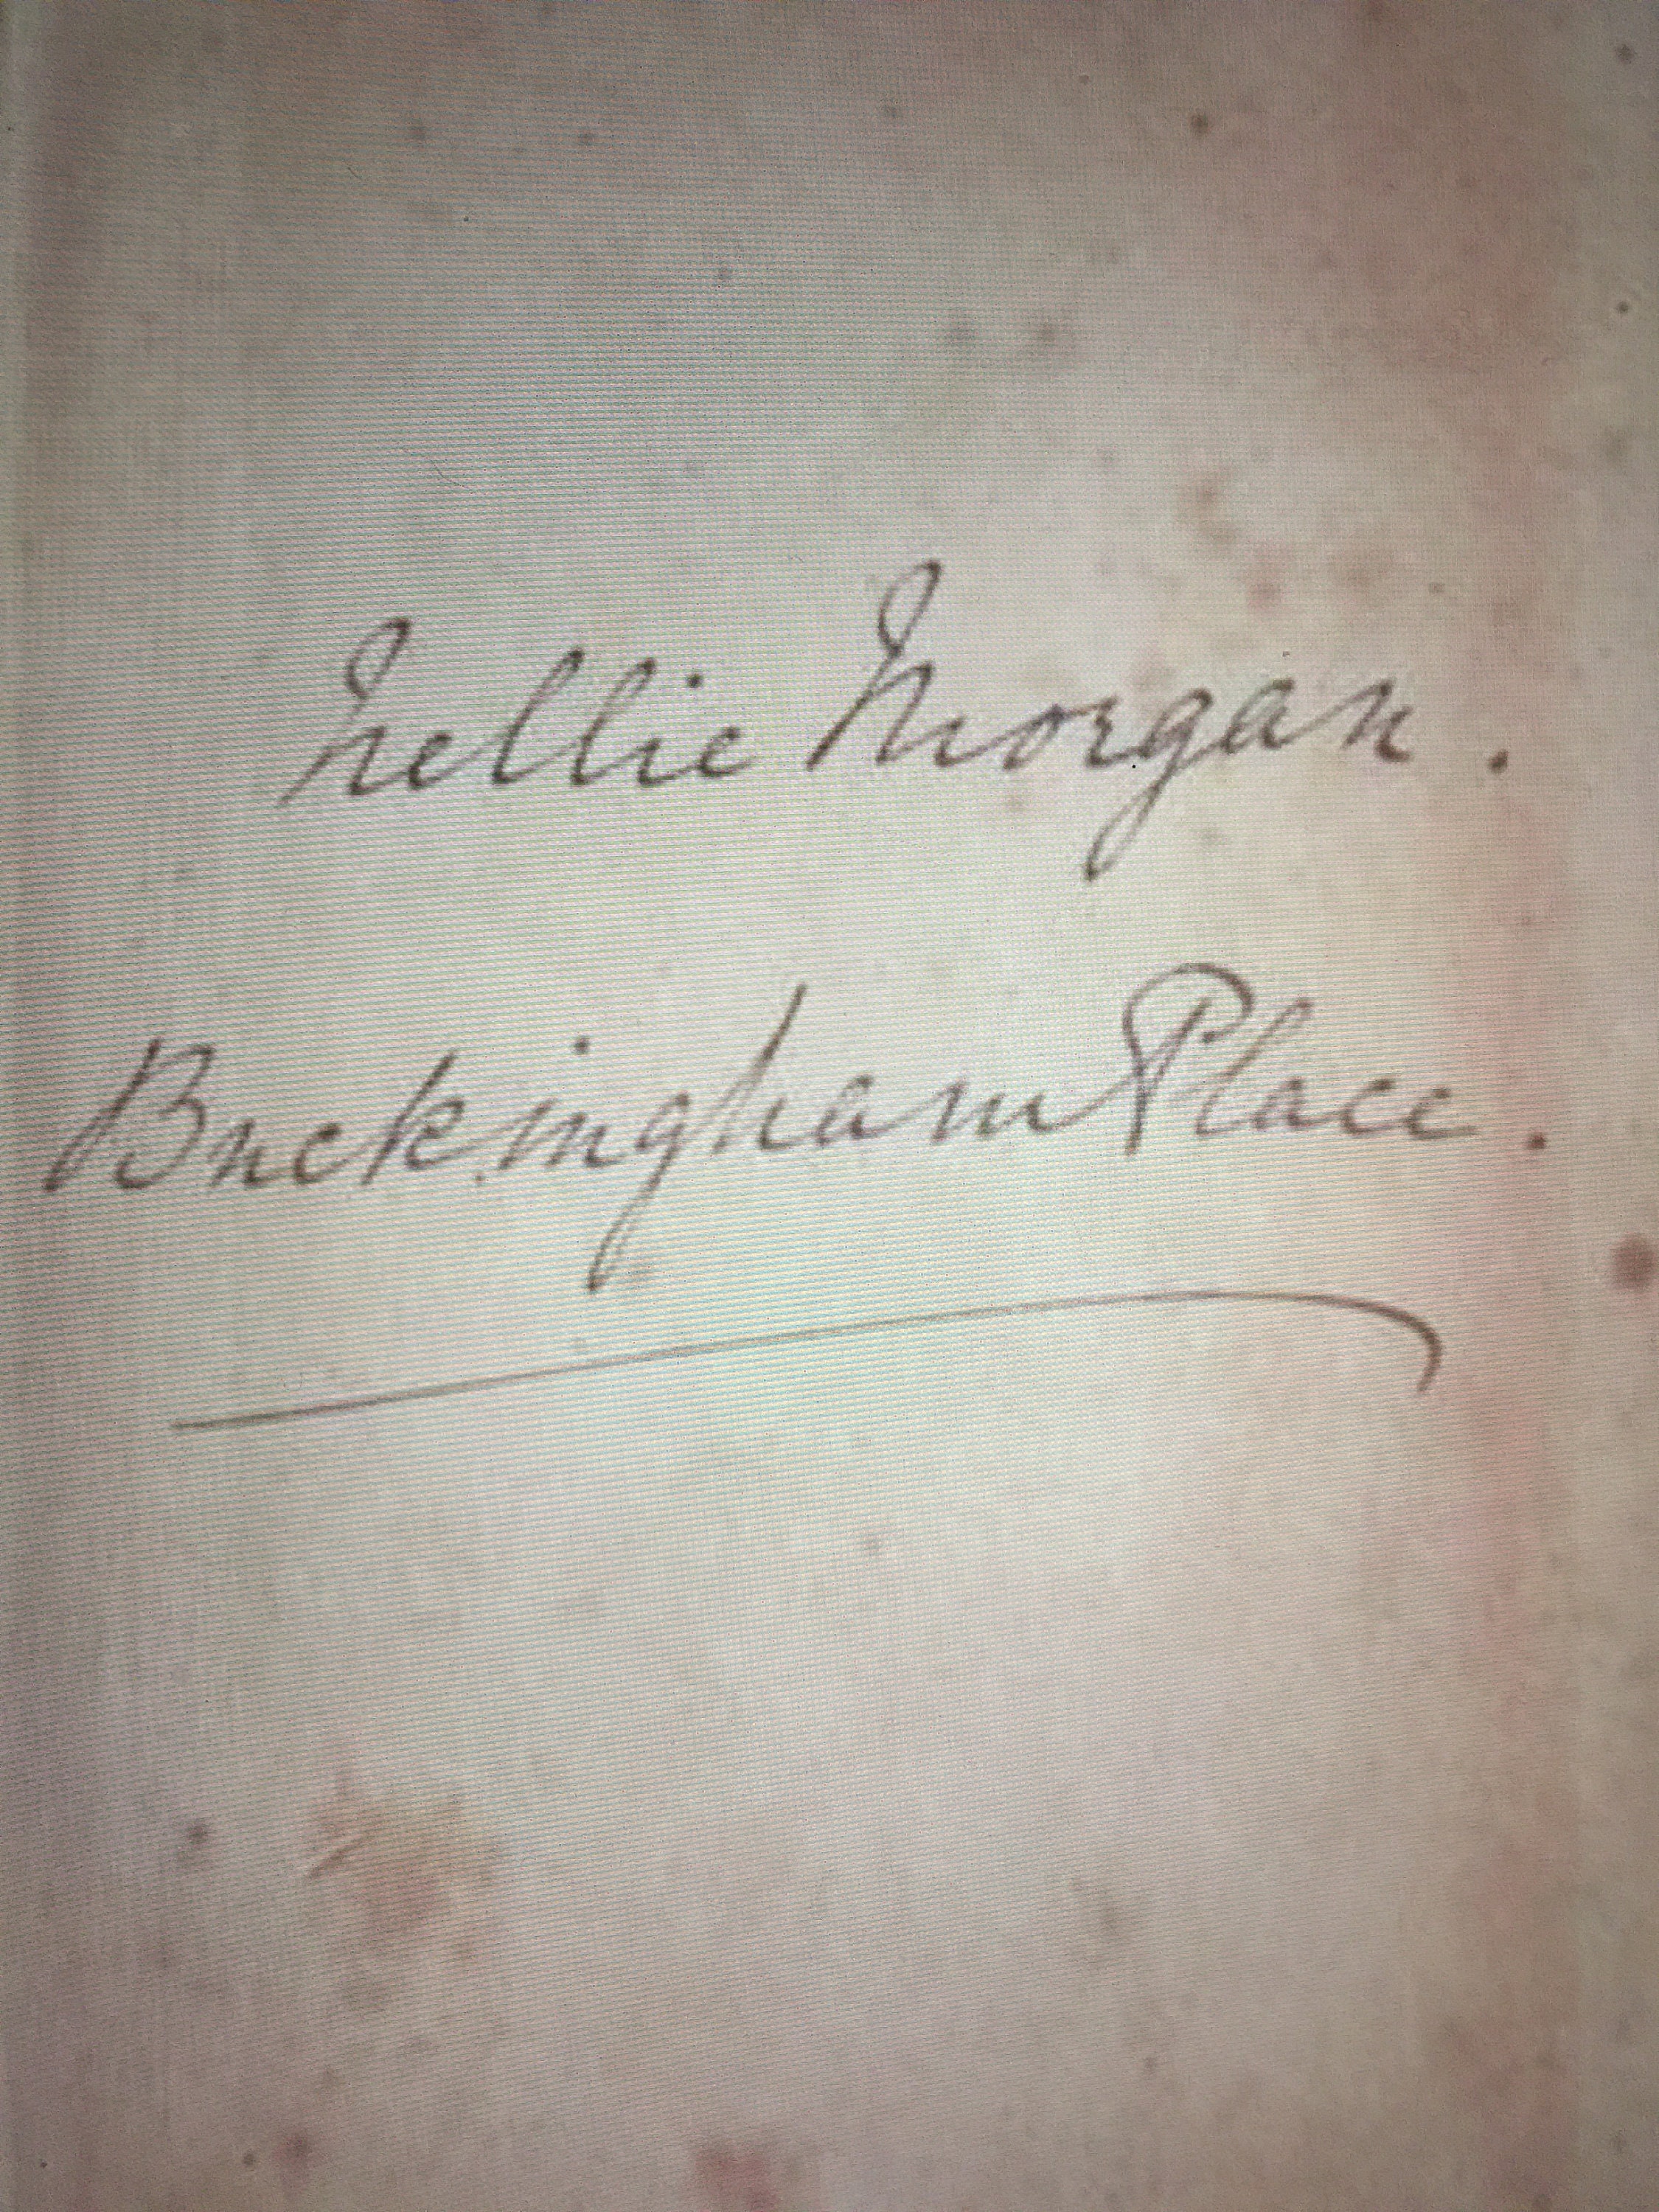 Nellie Morgan.
Buckingham Place.